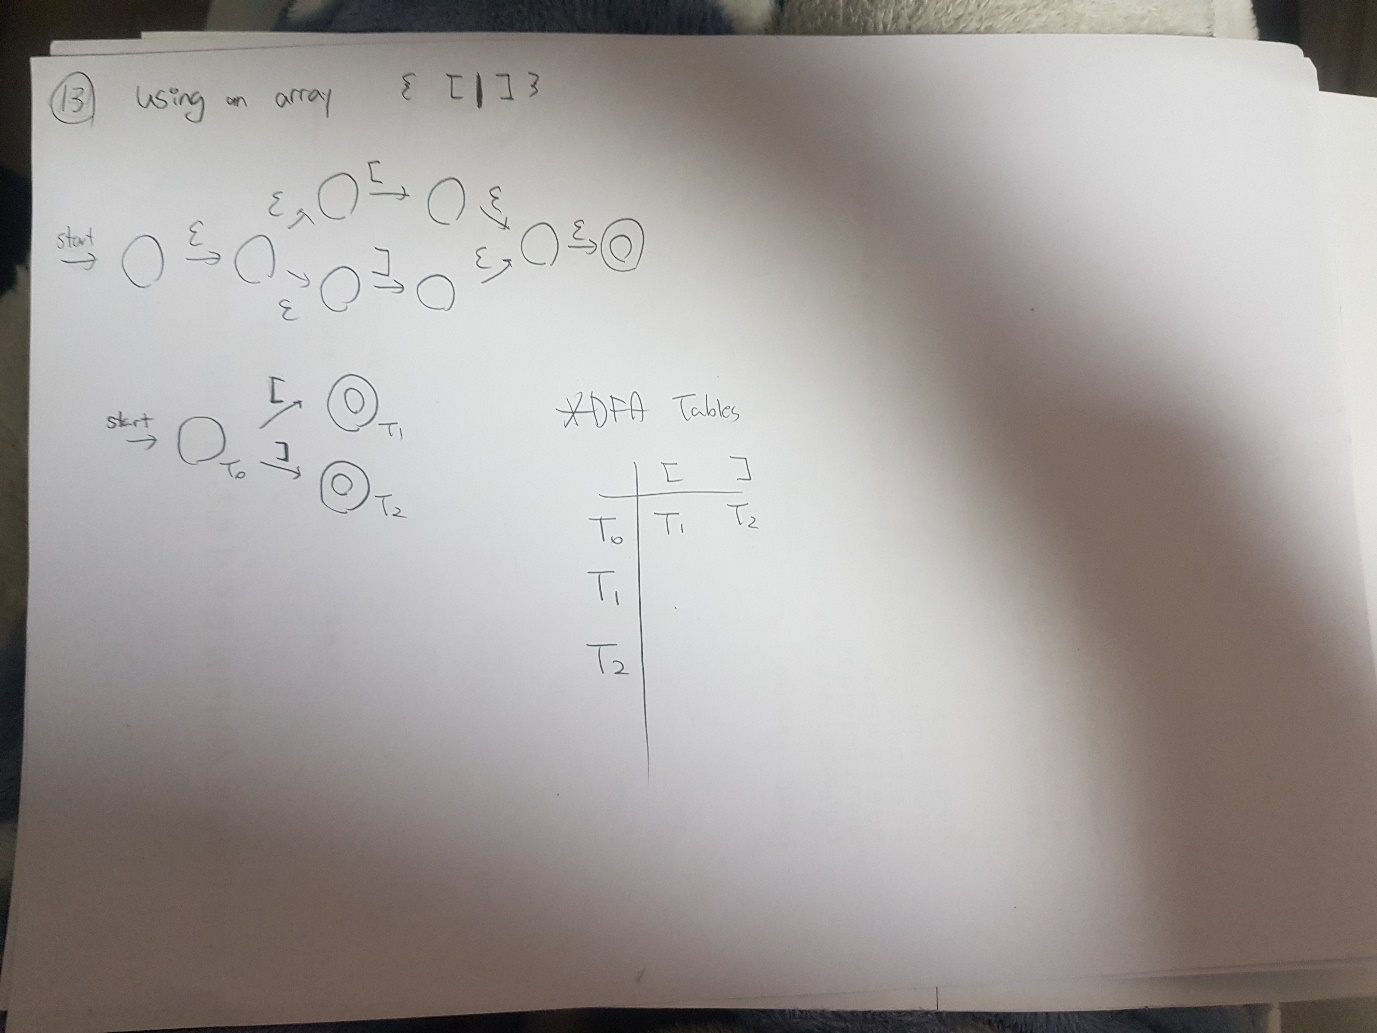 13 using an array { [ | ] }
[
ε ε
start ε ε
] ε
ε
start [ T1
T0 ] T2
*DFA Tables
[ ]
T0 T1 T2
T1
T2